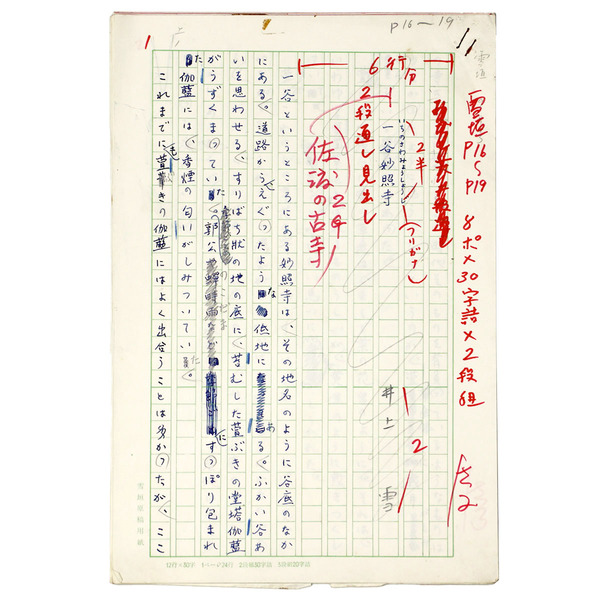 P16〜19
雪垣
雪垣 P16〜P19 8ポ×30字詰×2段組
6行分
2段通し見出し
2半
(つりガナ)
いちのさわみょうしょうじ
一谷妙照寺
佐渡の古寺
井上 雪
1
2
一谷というところにある妙照寺は、その地名のように谷底のなか
にある。道路からえぐったような低地にある。ふかい谷あ
いを思わせる、すりばち状の地の底に、苔むした萱ぶきの堂塔伽藍
がうずくまっていた。郭公や蟬時雨 にすっぽり包まれ
た伽藍には、香煙の匂いがしみついていた。
これまでに萱葺きの伽藍にはよく出合うことは多かったが、ここ
雪垣原稿用紙